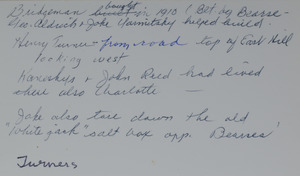 bought
Bridgeman built in 1910 ! Bet by Bearse
Geo. Aldrich + Jake Yarnitsky helped build.
Henry Turner - from road top of East Hill
looking west
+ John Reed had lived
there also Charlotte —
Jake also tore down the old
"white jack" salt box opp. Bearses'
Turners